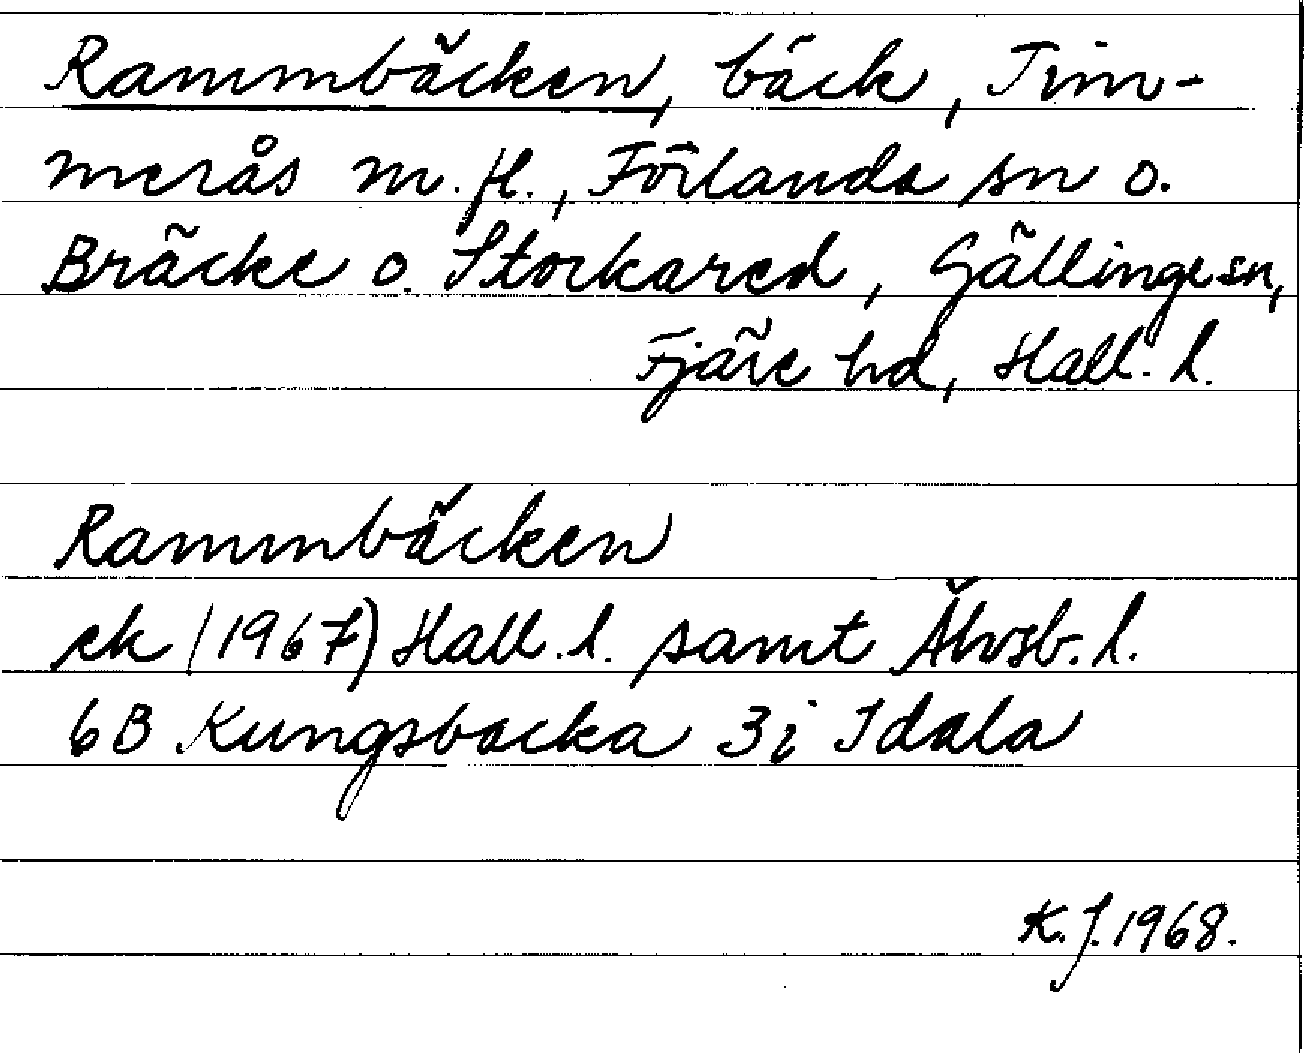 Rammbäcken, bäck, Tim-
merås m. fl., Förlanda sn o.
Bräcke o. Stockared, Gällinge sn,
Fjäre hd, Hall. l.
Rammbäcken
ek (1967) Hall. l. samt Älvsb. l.
6B Kungsbacka 3i Idala
K. J. 1968.